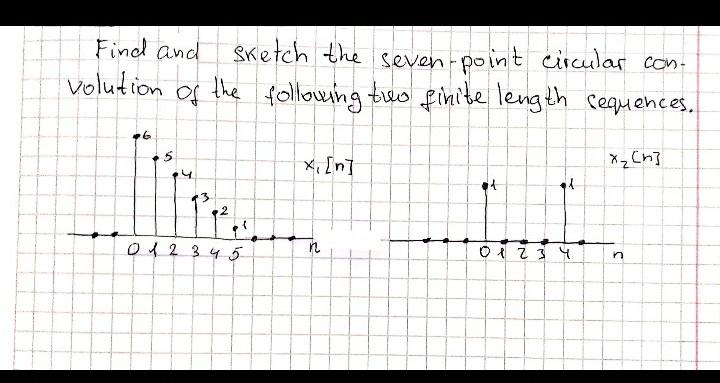 Find and sketch the seven-point circular con-
volution of the following two finite length sequences.
6
5
4
3
2
1
x₁[n]
0 1 2 3 4 5
n
1
1
x₂[n]
0 1 2 3 4
n